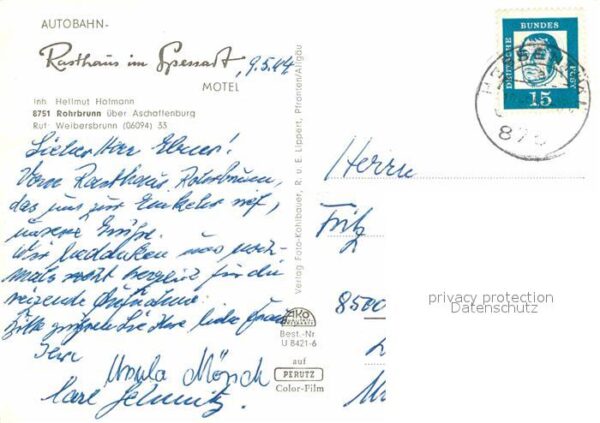 AUTOBAHN-
Rasthaus im Spessart, 9.5.64
MOTEL
Inh. Hellmut Hofmann
8751 Rohrbrunn über Aschaffenburg
Ruf: Weibersbrunn (06094) 33
Lieber Herr
Vom Rasthaus Rohrbrunn,
das uns zur Einkehr rief,
unsere Grüße.
Wir bedanken uns noch-
mals recht herzlich für die
reizende Aufnahme.
Bitte grüßen Sie Ihre liebe Frau
Ihre
Ursula
Karl Schmitz.
Verlag Foto-Kohlbauer, R. u. E. Lippert, Pfronten/Allgäu
Best.-Nr
U 8421-6
auf
PERUTZ
Color-Film
DEUTSCHE BUNDESPOST
15
875
Herrn
Fritz
8500
privacy protection
Datenschutz